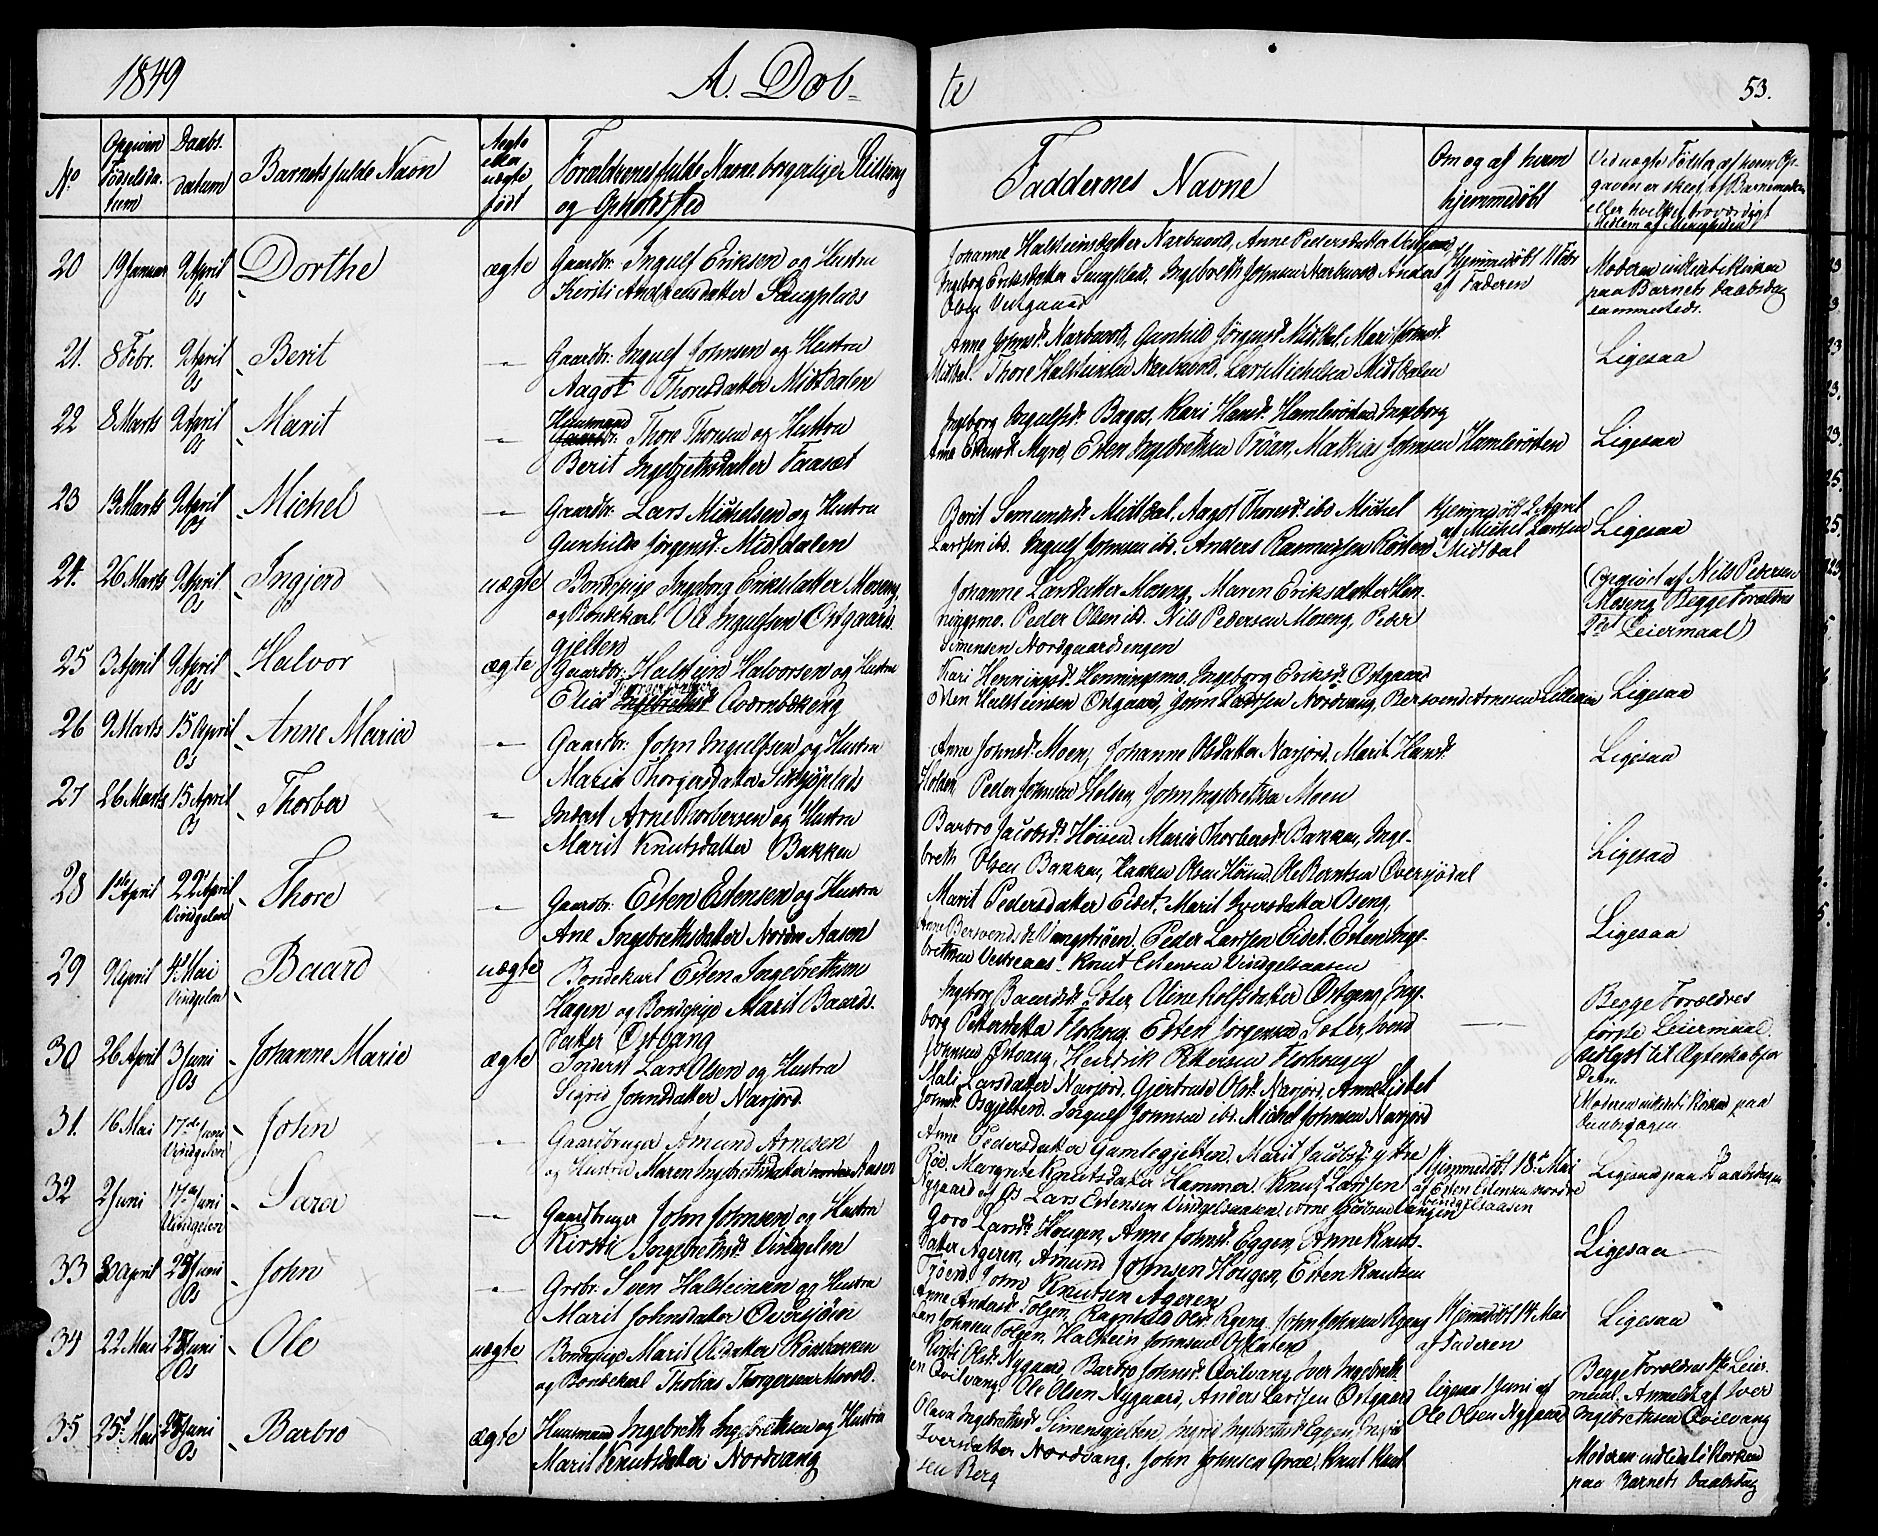 1849 A. Døb- te 53.
No Opgiven Fødselsdatum Daabsdatum Barnets fulde Navn Ægte eller uægte født Forældrenes fulde Navne borgerlige Stilling og Opholdsted
Faddernes Navne Om og af hvem hjemmedøbt Ved uægte Fødsler, af hvem Opgaven er skeet, af Barnemoder eller hvilket troværdigt Medlem af Menigheden
20 19 Januar 9 April Os Dorthe ægte Gaardbr. Ingulf Eriksen og Hustru
Kersti Andersdatter Sangplads
Johanne Halsteinsdatter Narbuvold, Anne Pedersdatter
Ingeborg Eriksdatter Sangplads, Ingebreth Johnsen Narbuvold Anders
Hjemmedøbt 11 Febr af Faderen
Moderen indledt i Kirken
paa Barnets Daabsdag
sammesteds.
21. 8 Febr. 9 April Os Berit - Gaardbr. Ingulf Johnsen og Hustru
Aagot Thoresdatter Midtdalen
Anne Johnsd. Narbuvold, Gunhild Jørgensd. Midtdal, Mari
Midtdal. Thore Halsteinsen Narbuvold, Lars Michelsen Midtdalen
Ligesaa
22 8 Marts 9 April Os Marit - Huusmand Thore Thoresen og Hustru
Berit Ingebrethsdatter Faaset
Ingeborg Ingulfsd. Bagos, Kari Hansd. Hamlerøsten, Ingeborg
Estensd. Myre, Esten Ingebrethsen Trøan, Mathias Johnsen Hamlerøsten
Ligesaa
23 13 Marts 9 April Os Michel - Gaardbr. Lars Michelsen og Hustru
Gunhild Jørgensd. Midtdalen
Berit Semundsd. Midtdal, Aagot Thoresd. ibd Michel
Larsen ibd. Ingulf Johnsen ibd. Anders Rasmussen Røsten
Hjemmedøbt 2 April
af Michel Larsen
Midtdal
Ligesaa
24. 26 Marts 9 April Os Ingjerd uægte Bondepige Ingeborg Eriksdatter Moseng
og Bondekarl Ole Ingulfsen Østgaards-
gjelten
Johanne Larsdatter Moseng, Maren Eriksdatter Hen-
ningsmo. Peder Olsen ibd. Nils Pedersen Moseng, Peder
Simensen Nordgaardsengen
(Opgivet af Nils Pedersen
Moseng Begge Forældres
Leiermaal)
25 3 April 9 April Os Halvor ægte Gaardbr: Halsteen Halvorsen og Hustru
Elid Qværnbekeng
Kari Henningsd. Henningsmo, Ingeborg Eriksd. Østgaard
Esten Halsteinsen Østgaard, John Larsen Nordvang, Bersvend Arnesen
Ligesaa
26 9 Marts 15 April Os Anne Maria - Gaardbr. John Ingulfsen og Hustru
Maria Thorgersdatter
Ane Johnsd. Moen, Johanne Olsdatter Narjord, Marit Hansd.
Holden, Peder Johnsen Holsen, John Ingebrethsen Moen
Ligesaa
27 26 Marts 15 April Os Thorber - Inderst Arne Thorbersen og Hustru
Marit Knutsdatter Bakken
Barbro Jacobsd. Høisen. Maria Thorbersd. Bakken, Inge-
breth Olsen Bakken, Haaken Olsen Høisen, Ole Berntsen Øversjødal
Ligesaa
28 1ste April 22 April Vindgelen Thore - Gaardbr: Esten Estensen og Hustru
Ane Ingebrethsdatter Nordre Aasen
Marit Pedersdatter Eidet. Marit Iversdatter Oseng,
Ane Bersvendsd. Vangstrøen. Peder Larsen Eidet. Esten Inge-
brethsen Vestreaas. Knut Estensen Vindgelsaasen
Ligesaa
29 9 April 4 Mai Vindgelen Baard uægte Bondekarl Esten Ingebrethsen
Hagen og Bondepige Marit Baards-
datter Østvang
Ingeborg Baardsd. Søter, Oline Rolfsdatter Østgeng, Inge-
borg Pettersdatter Flohoug, Esten Jørgensen Søter, Svend
Johnsen Østvang, Hendrik Pettersen Flohougen
-
Begge Forældres
første Leiermaal,
udlyst til Ægteskab for
Dem.
30 26 April 3 Juni Os Johanne Marie ægte Inderst Lars Olsen og Hustru
Sigrid Johnsdatter Narjord.
Mali Larsdatter Narjord, Gjertrud Olsd. Narjord, Anne Lisbet
Johnsd. Osgjelten. Ingulf Johnsen ibd. Michel Johnsen Narjord
Moderen indledt i Kirken paa
Daabsdagen.
31. 16 Mai 17de Juni Vindgelen John - Gaardbruger Amund Arnesen
og Hustru Maren Ingebrethsdatter Aasen
Anne Pedersdatter Gamlegjelten. Marit Jacobsd. ytre
Røe. Margrete Knutsdatter Hammer. Knut Larsen
Nygaard af Os Lars Estensen Vindgelsaasen Arne
Hjemmedøbt 18 Mai
af Esten Estensen nordre
Vindgelsaasen
Ligesaa paa Daabsdagen
32 2 Juni 17de Juni Vindgelen Sara - Gaardbruger John Johnsen og Hustru
Kirsti Ingebrethsd. Vindgelen
Goro Larsd. Hougen, Anne Johnsd. Eggen, Anne Knuts-
datter Ageren, Amund Johnsen Hougen, Esten Knutsen
Trøen, John Knutsen Ageren
Ligesaa
33 30 April Juni Os John - Grdbr. Sven Halsteinsen og Hustru
Marit Johnsdatter Øversjøen
Anne Andersd. Tolgen, Ragnhild Olsd. Ryeng. John Johnsen Ryeng
Johnsen Tolgen, Halstein Johnsen
Hjemmedøbt 14 Mai
af Faderen
Ligesaa
34 22 Mai Juni Os Ole uægte Bondepige Marit Olsdatter Rødsbakken
og Bondekarl Thobias Thorgersen Morold.
Kirsti Olsd. Nygaard, Barbro Johnsd. Qvilvang, Iver Ingebreth-
en Qvilvang. Ole Olsen Nygaard, Anders Larsen Østgaard
ligesaa 1 Juni af
Ole Olsen Nygaard
Begge Forældres 1ste Leier-
maal. Anmeldt af Iver
Ingebrethsen Qvilvang
35 25 Mai Juni Os Barbro ægte Huusmand Ingebreth Ingebrethsen og Hustru
Marit Knutsdatter Nordvang
Olava Ingebrethsd. Simensgjelten, Ingrid Ingebrethsd. Eggen, Ingrid
Iversdatter Nordvang, John Johnsen Grae, Knut Knut-
sen Berg
Moderen indledt i Kirken
paa Barnets Daabsdag